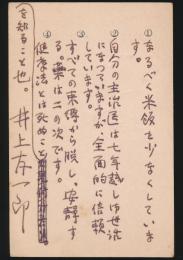 ①なるべく米飯を少なくしていま
す。
②自分の主治医は七年越しお世話
になつていますが、全面的に信頼
しています。
③すべての束縛から脱し、安静す
る。薬は二の次です。
④健康法とは死ぬこと
を知ること也。
井上友一郎